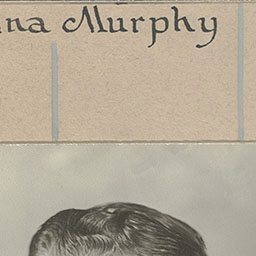 na Murphy